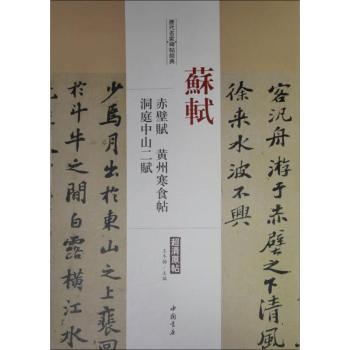 客汎舟游于赤壁之下清風
徐来水波不興
歷代名家碑帖經典
蘇軾
赤壁賦 黄州寒食帖
洞庭中山二賦
超清原帖
主編
中國書店
少焉月出於東山之上裴回
於斗牛之間白露橫江水